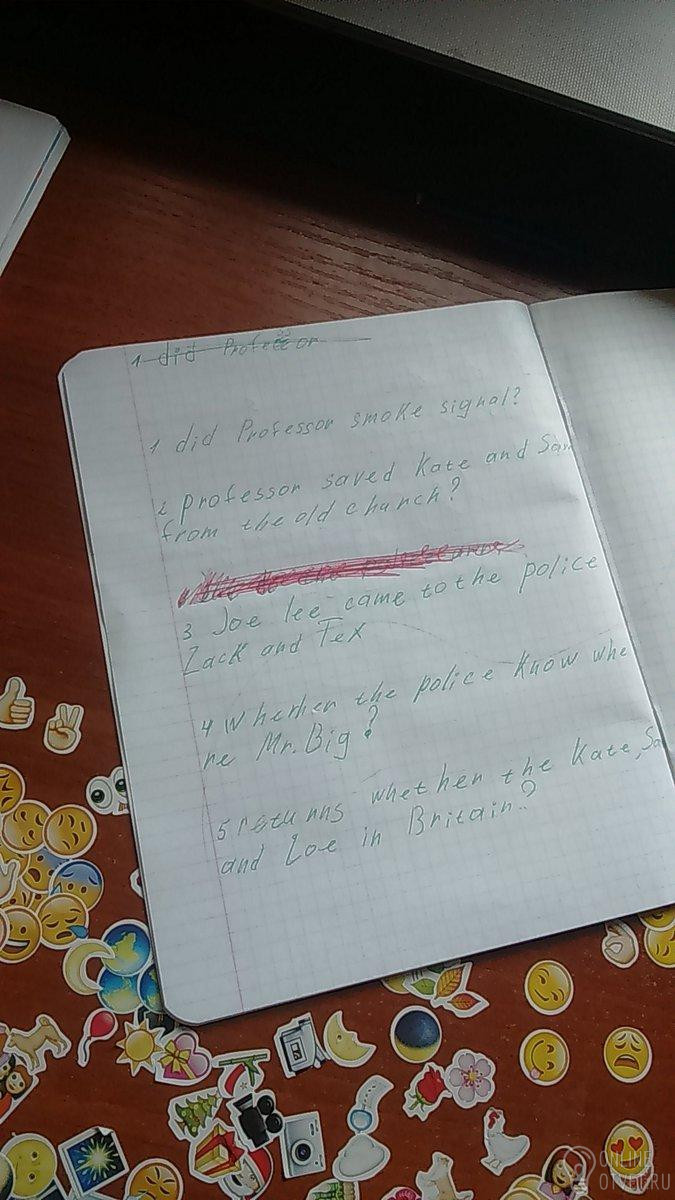 1 did Professor
1 did Professor smoke signal?
2 professor saved Kate and Sam
from the old church?
3 Joe lee came to the police
Zack and Tex
4 Whether the police know whe
re Mr. Big?
5 returns whether the Kate, Sa
and Zoe in Britain?
ONLINE
OTVET.RU